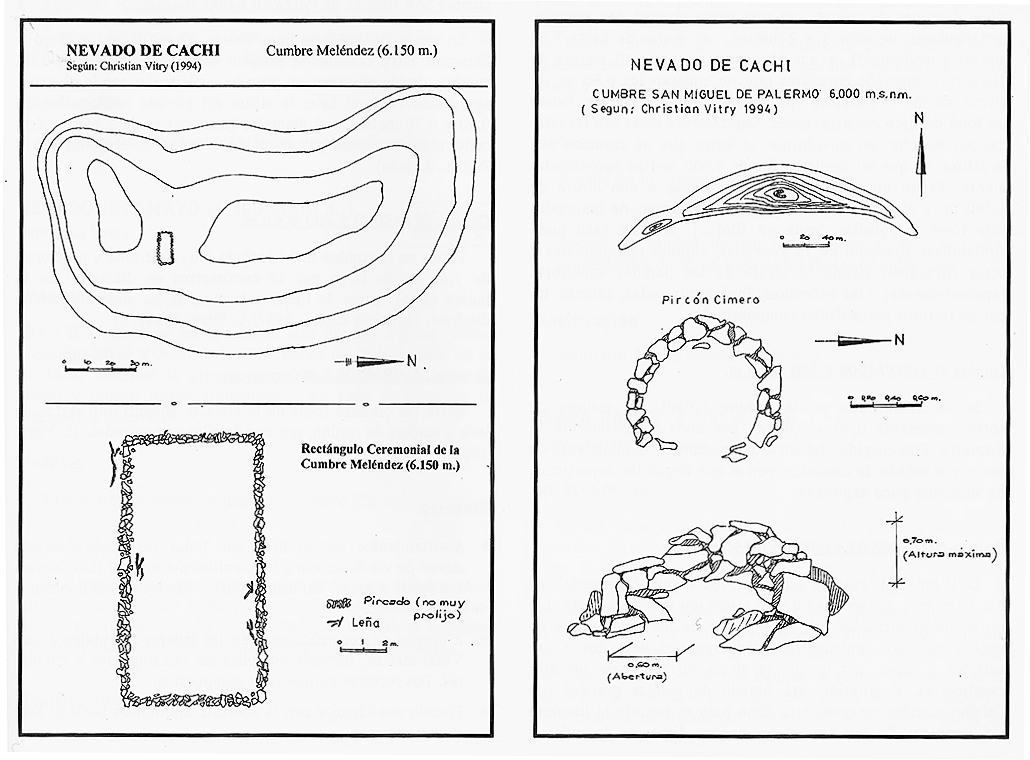 NEVADO DE CACHI
Cumbre Meléndez (6.150 m.)
Según: Christian Vitry (1994)
N
0 10 20 30 m.
Rectángulo Ceremonial de la
Cumbre Meléndez (6.150 m.)
Pircado (no muy
prolijo)
Leña
0 1 2 m.
NEVADO DE CACHI
CUMBRE SAN MIGUEL DE PALERMO 6,000 m.s.n.m.
(Segun: Christian Vitry 1994)
N
0 20 40 m.
Pircón Cimero
N
0 0,20 0,40 0,60 m.
0,70 m.
(Altura máxima)
0,60 m.
(Abertura)